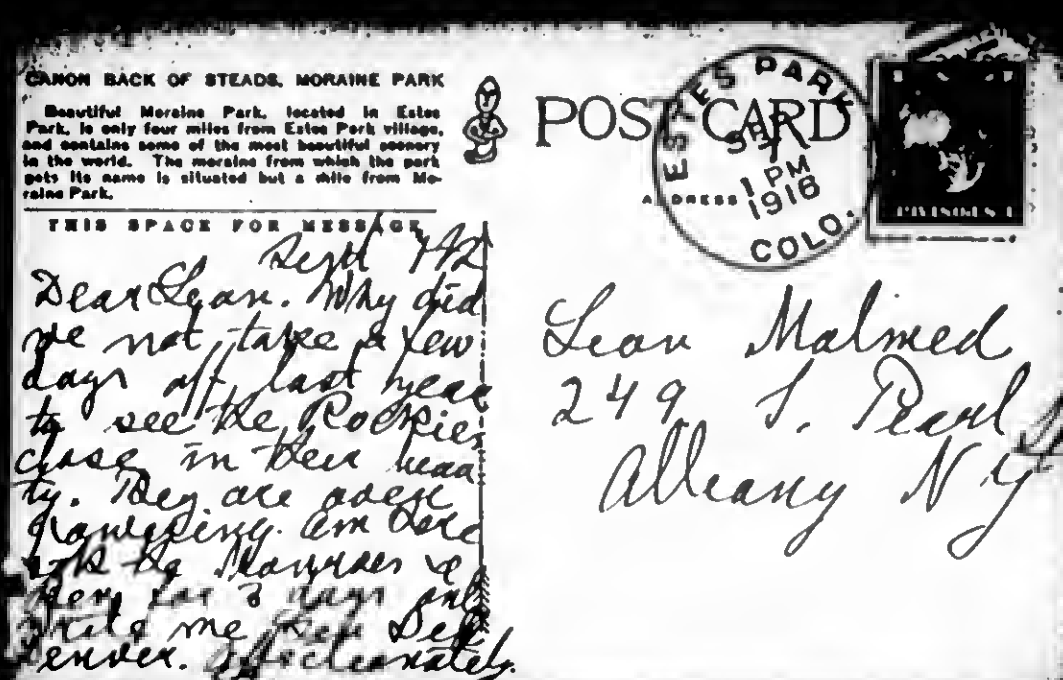 CANON BACK OF STEADS, MORAINE PARK
Beautiful Moraine Park, located in Estes
Park, is only four miles from Estes Park village,
and contains some of the most beautiful scenery
in the world. The moraine from which the park
gets its name is situated but a mile from Mo-
raine Park.
THIS SPACE FOR MESSAGE
POST CARD
ADDRESS
ESTES PARK
SEP
1 PM
1916
COLO.
Sept
Dear Leon. Why did
we not take a few
days off, last year
to see the Rockies
close in their beau
ty. They are over
powering. Am here
for 3 days only
Write me Gen Del
Denver. Affectionately.
Leon Malmed
249 S. Pearl
Albany N Y